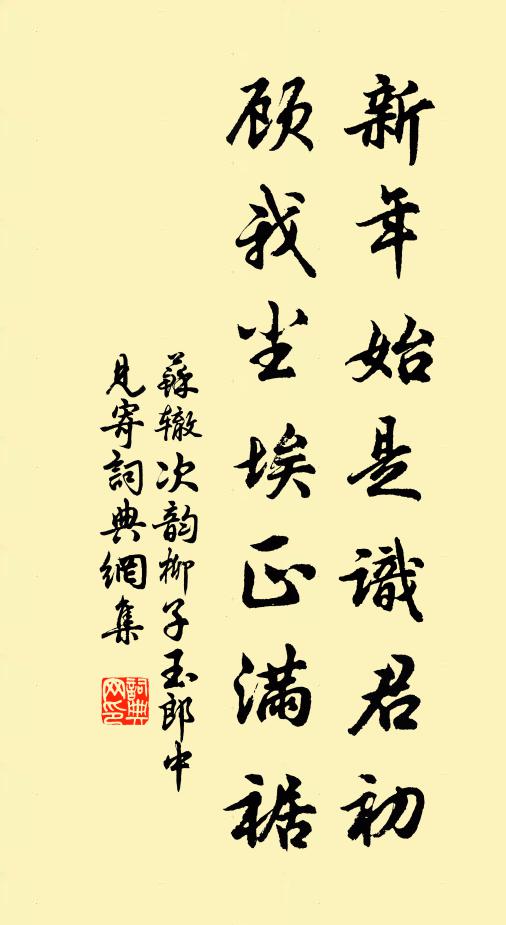 新年始是識君初
顾我尘埃正滿裾
蘇辙次韵柳子玉郎中
見寄詞典網集
詞典
网印